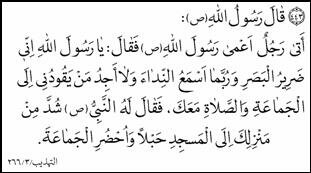 (٤٤٣) قَالَ رَسُولُ اللهِ (ص):
أَتىٰ رَجُلٌ أَعْمىٰ رَسُولَ اللهِ (ص) فَقالَ: يا رَسُولَ اللهِ إِنّي
ضَرِيرُ الْبَصَرِ وَرُبَّما اَسْمَعُ النِّداءَ وَلا أَجِدُ مَنْ يَقُودُنِي اِلَى
الْجَماعَةِ وَالصَّلاةِ مَعَكَ، فَقالَ لَهُ النَّبِيُّ (ص) شُدَّ مِنْ
مَنْزِلِكَ اِلَى الْمَسجِدِ حَبْلاً وَاُحْضُرِ الْجَماعَةَ.
التهذيب/٣/٢٦٦